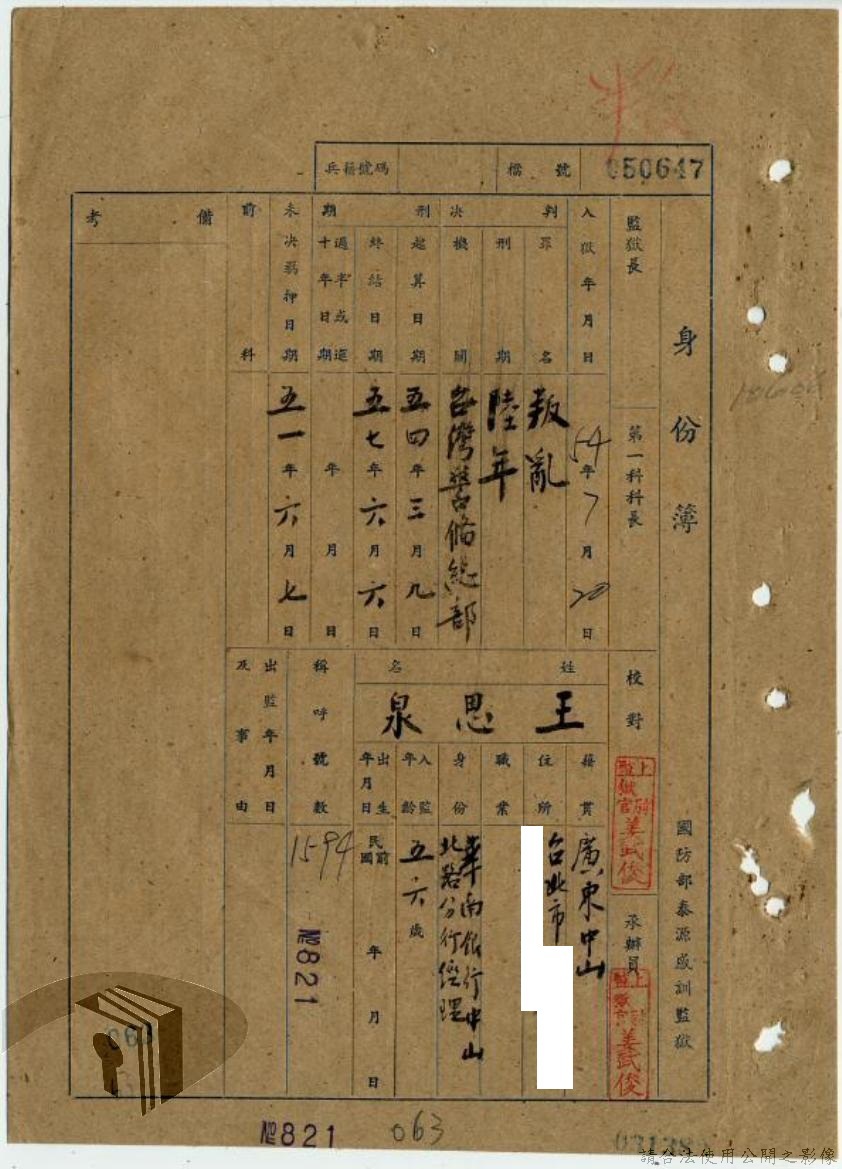 兵籍號碼
檔號 050647
身份簿
國防部泰源感訓監獄
監獄長
第一科科長
校對
承辦員
姜武俊
姜武俊
入獄年月日 54年7月20日
判決
罪名 叛亂
刑期 陸年
機關 台灣警備總部
刑期
起算日期 五四年三月九日
終結日期 五七年六月六日
過半或逾十年日期 年 月 日
未決羈押日期 五一年六月七日
前科
備考
姓名
王思泉
籍貫 廣東中山
住所 台北市
職業
身份 華南銀行中山北路分行經理
入監年齡 五六歲
出生年月日 民國前 年 月 日
稱呼號數 1594
№821
出監年月日及事由
063
№821
063
請合法使用公開之影像